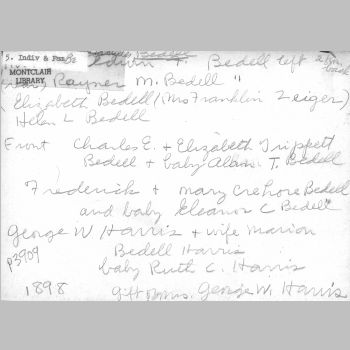 5. Indiv & Fam
MONTCLAIR
LIBRARY
Edwin T. Bedell left
back
Rayner M. Bedell "
(Elizabeth Bedell (Mrs Franklin Zeiger)
Helen L Bedell
Front Charles E. + Elizabeth Trippett
Bedell + baby Alan T. Bedell
Frederick + Mary Crehore Bedell
and baby Eleanor C Bedell"
George W Harris + wife Marion
p3909
Bedell Harris
baby Ruth C. Harris
1898
gift of Mrs. George W. Harris